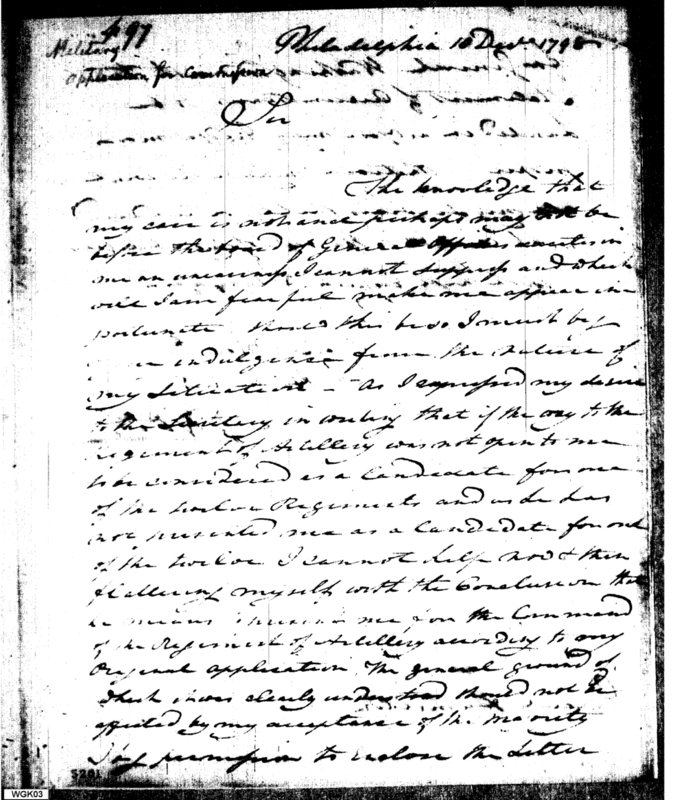 497
Military
application for Commission
Philadelphia 10 Decr 1798
Sir
The knowledge that
my case is not and perhaps may not be
before the board of General Officers excites in
me an uneasiness I cannot suppress and which
will I am fearful make me appear im-
portunate should this be so I must beg
indulgence from the nature of
my Situation - As I expressed my desire
to the Secretary in writing that if the way to the
regiment of Artillery was not open to me
to be considered as a Candidate for one
of the twelve Regiments and as he has
not presented me as a Candidate for one
of the twelve I cannot help now & then
flattering myself with the Conclusion that
he means me for the Command
of the Regiment of Artillery according to my
Original application The general ground of
which it was clearly understood should not be
affected by my acceptance of the Majority
I beg permission to enclose the Letter
5201
WGK03